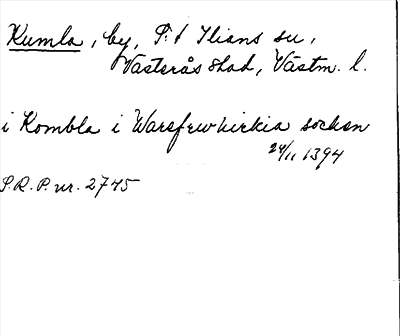 Kumla, by, S:t Ilians sn,
Västerås stad, Västm. l.
i Kombla i Warsfrwkirkia sockn
24/11 1394
S.R.P. nr. 2745